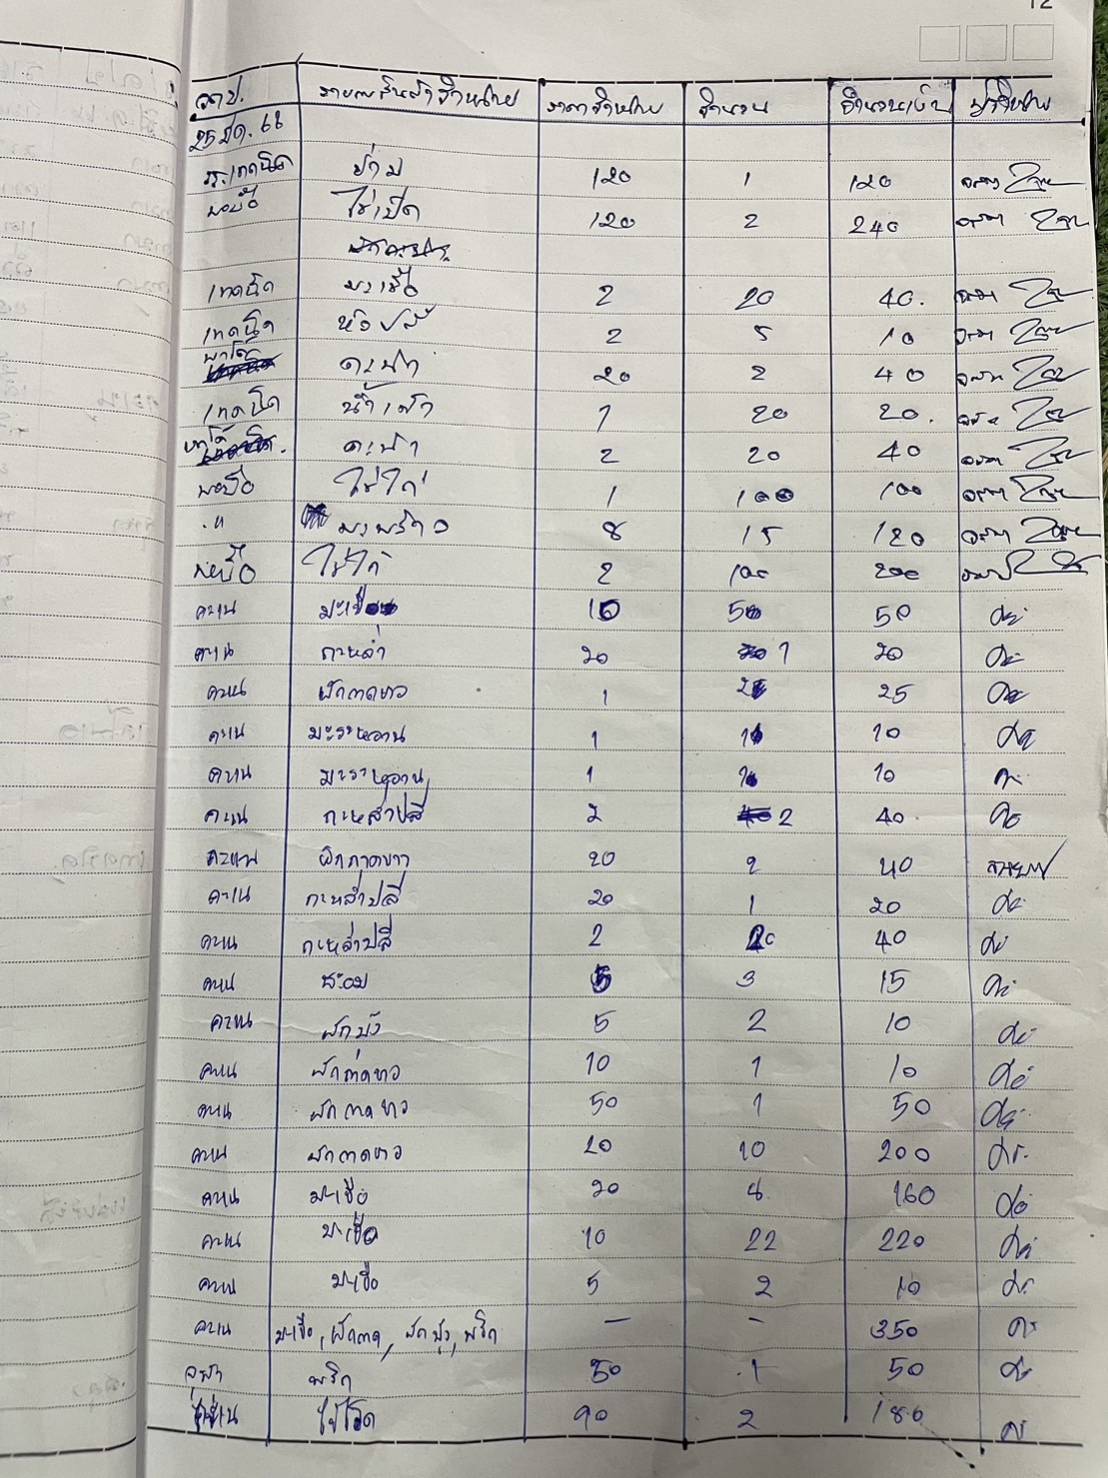 12
วดป. รายการสินค้าจำหน่าย ราคาจำหน่าย จำนวน จำนวนเงิน ผู้จำหน่าย
25 มี.ค. 68
รร.เทคนิค ย่าม 120 1 120
พอบือ ไข่เป็ด 120 2 240
เทคนิค มะเขือ 2 20 40.
เทคนิค หัวปลี 2 5 10
พาโด้ คะน้า 20 2 40
เทคนิค น้ำเต้า 1 20 20.
พาโด้ คะน้า 2 20 40
พอบือ ไข่ไก่ 1 100 100
" มะพร้าว 8 15 120
พอบือ ไข่ไก่ 2 100 200
คะเน มะเขือ 10 50 50
คะเน กะหล่ำ 20 1 20
คะเน ผักกาดขาว 1 25 25
คะเน มะระหวาน 1 10 10
คะเน มะระหวาน 1 10 10
คะเน กะหล่ำปลี 2 2 40
คะเน ผักกาดขาว 20 2 40
คะเน กะหล่ำปลี 20 1 20
คะเน กะหล่ำปลี 2 20 40
คะเน ชะอม 5 3 15
คะเน ผักบุ้ง 5 2 10
คะเน ผักกาดขาว 10 1 10
คะเน ผักกาดขาว 50 1 50
คะเน ผักกาดขาว 20 10 200
คะเน มะเขือ 20 8 160
คะเน มะเขือ 10 22 220
คะเน มะเขือ 5 2 10
คะเน มะเขือ, ผักกาด, ผักบุ้ง, พริก - - 350
จุฬา พริก 50 1 50
คะเน 90 2 180